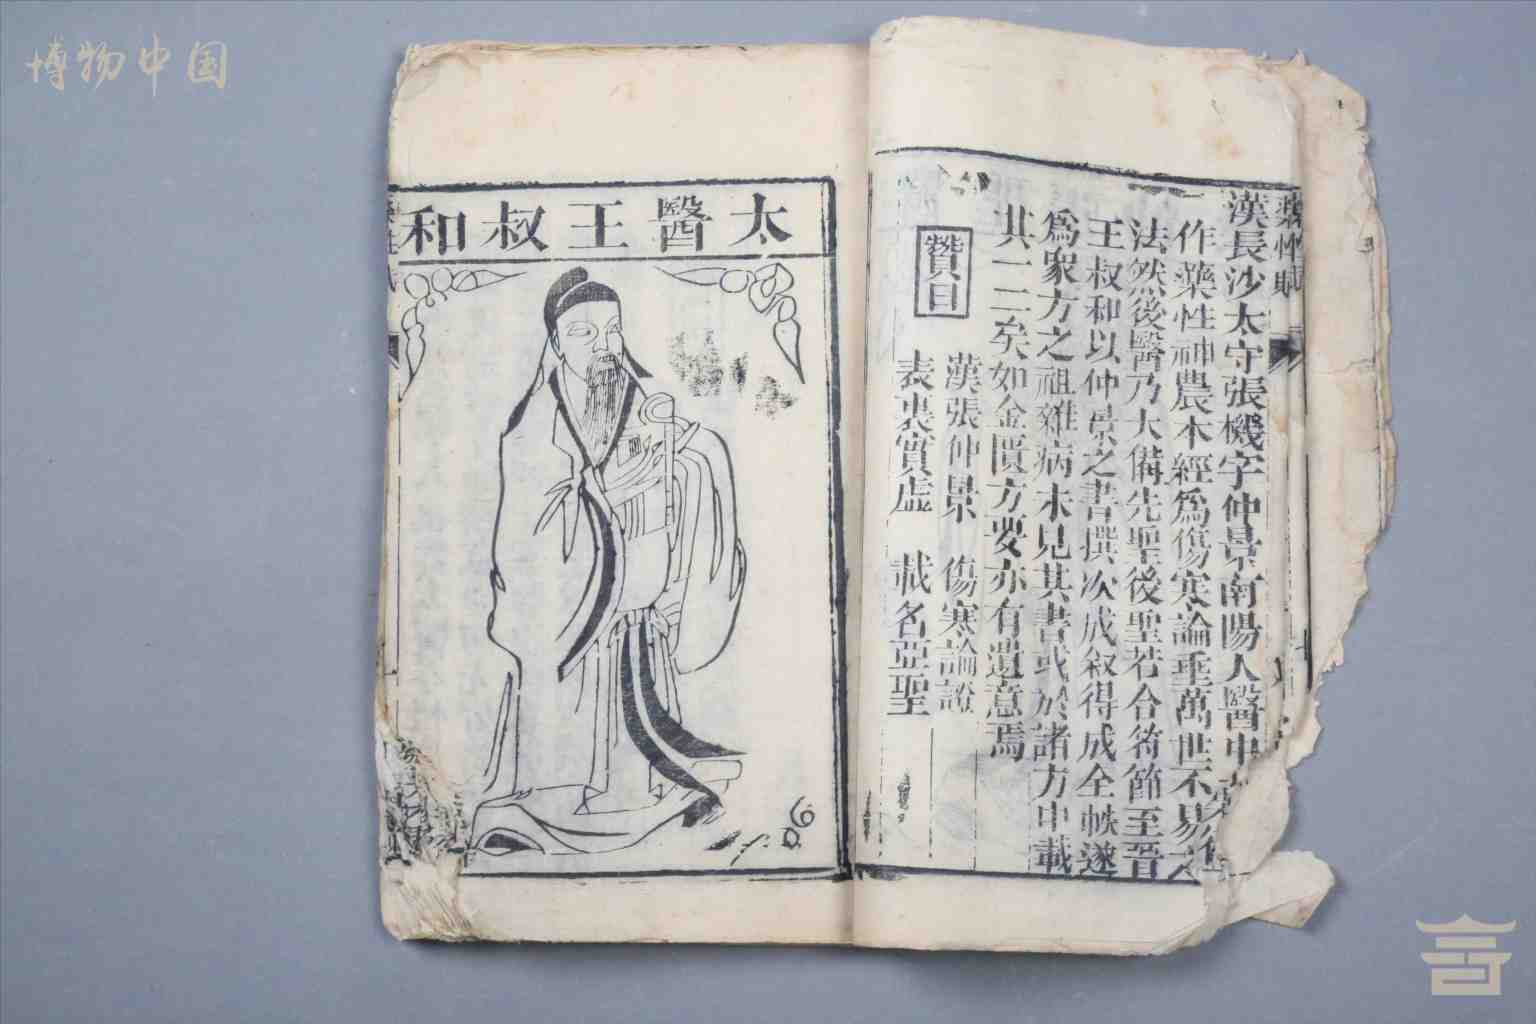 博物中国
藥性賦
漢長沙太守張機字仲景南陽人醫中
作藥性神農本經爲傷寒論垂萬世不易之
法然後醫乃大備先聖後聖若合符節至晉
王叔和以仲景之書撰次成叙得成全帙遂
爲衆方之祖雜病未見其書或於諸方中載
其一二矣如金匱方要亦有遺意焉
贊曰
漢張仲景 傷寒論證
表裏實虛 載名亞聖
太醫王叔和